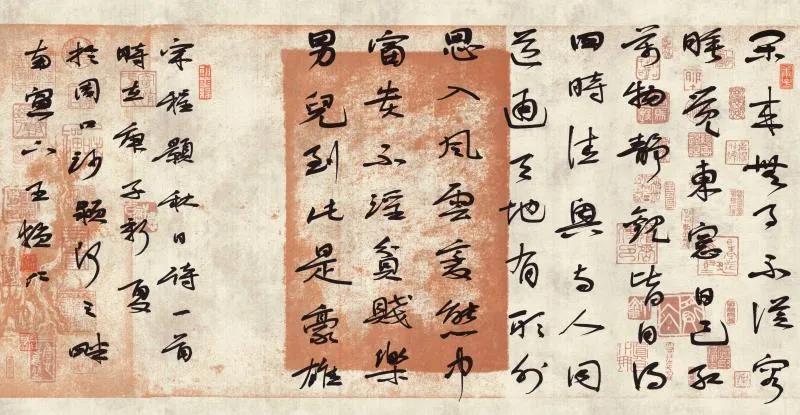 閑来無事不從容
睡覺東窗日已紅
萬物靜觀皆自得
四時佳興与人同
道通天地有形外
思入風雲變態中
富貴不淫貧賤樂
男兒到此是豪雄
宋程顥秋日詩一首
時在庚子新夏
於周口沙潁河之畔
南窗下王猛仁